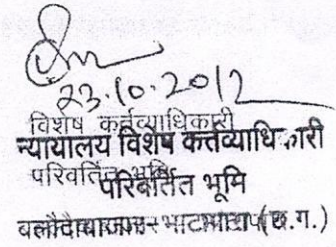 23.10.2012
विशेष कर्तव्याधिकारी
न्यायालय विशेष कर्त्तव्याधिकारी
परिवर्तित भूमि
परिवर्तित भूमि
बलौदाबाजार-भाटापारा (छ.ग.)